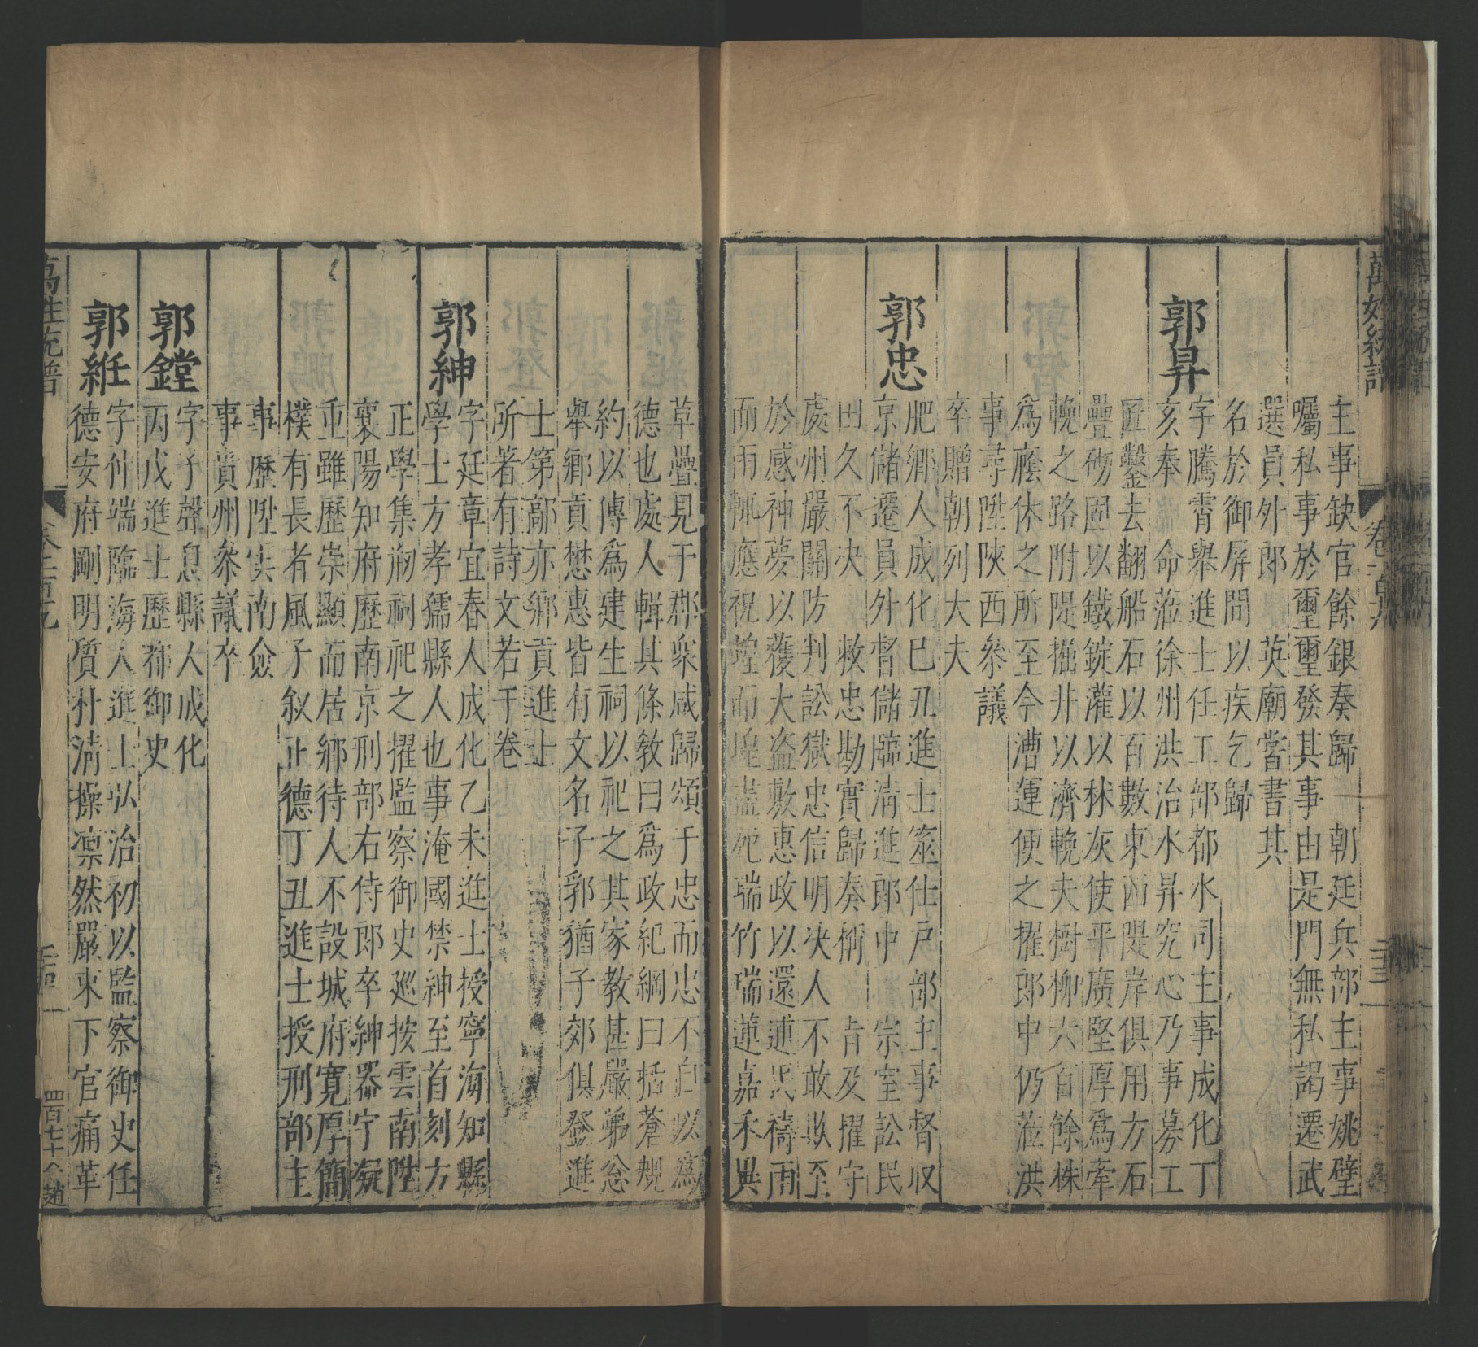 萬姓統譜
卷一百十八
主事缺官餘銀奏歸 朝廷兵部主事姚璧
囑私事於璽璽發其事由是門無私謁遷武
選員外郎 英廟嘗書其
名於御屏間以疾乞歸
郭昇
字騰霄舉進士任工部都水司主事成化丁
亥奉 命蒞徐州洪治水昇究心乃事募工
匠鑿去翻船石以百數東西隄岸俱用方石
疊砌固以鐵錠灌以秫灰使平廣堅厚為牽
輓之路附隄掘井以濟輓夫樹柳六百餘株
為廕休之所至今漕運便之擢郎中仍蒞洪
事尋陞陝西叅議
卒贈朝列大夫
郭忠
肥鄉人成化巳丑進士筮仕戶部主事督収
京儲遷員外督儲臨清進郎中 宗室訟民
田久不决 敕忠勘實歸奏稱 旨及擢守
處州嚴關防判訟獄忠信明决人不敢欺至
於感神夢以獲大盗敷惠政以還逋民禱雨
而雨輒應祝蝗而蝗盡死瑞竹瑞蓮嘉禾異
草疊見于郡衆咸歸頌于忠而忠不自以為
德也處人輯其條敎曰為政紀綱曰括蒼規
約以傳為建生祠以祀之其家教甚嚴弟忿
舉鄉貢懋惠皆有文名子郛猶子郊俱登進
士第鄗亦鄉貢進士
所著有詩文若干卷
郭紳
字廷章宜春人成化乙未進士授寧海知縣
學士方孝孺縣人也事淹國禁紳至首刻方
正學集剏祠祀之擢監察御史巡按雲南陞
襄陽知府歷南京刑部右侍郎卒紳器宇凝
重雖歷崇顯而居鄉待人不設城府寛厚簡
樸有長者風子叙正德丁丑進士授刑部主
事歷陞雲南僉
事貴州叅議卒
郭鏜
字子聲息縣人成化
丙戌進士歷都御史
郭絍
字仲端臨海人進士弘治初以監察御史任
德安府剛明質朴清操凛然嚴束下官痛革
萬姓統譜